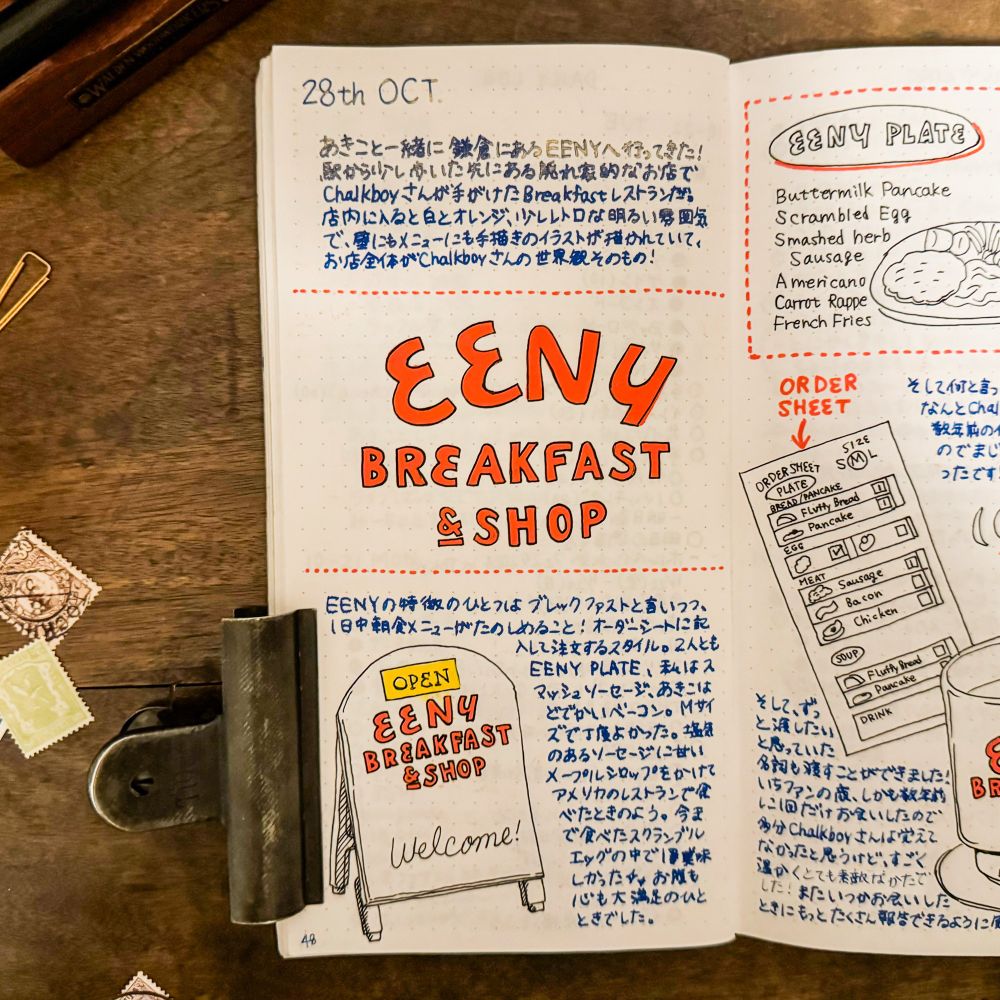 28th OCT.
あきこと一緒に鎌倉にあるEENYへ行ってきた!
駅から少し歩いた先にある隠れ家的なお店で
Chalkboyさんが手がけたBreakfastレストランだ。
店内に入ると白とオレンジ、少しレトロな明るい雰囲気
で、壁にもメニューにも手描きのイラストが描かれていて、
お店全体がChalkboyさんの世界観そのもの!
EENY
BREAKFAST
& SHOP
EENYの特徴のひとつは ブレックファストと言いつつ、
1日中朝食メニューがたのしめること! オーダーシートに記
入して注文するスタイル。2人とも
EENY PLATE、私はス
マッシュソーセージ、あきこは
どでかいベーコン。Mサイ
ズで丁度よかった。塩気
のあるソーセージに甘い
メープルシロップをかけて
アメリカのレストランで食
べたときのよう。今ま
で食べたスクランブル
エッグの中で1番美味
しかったす。お腹も
心も大満足のひと
ときでした。
OPEN
EENY
BREAKFAST
& SHOP
Welcome!
48
EENY PLATE
Buttermilk Pancake
Scrambled Egg
Smashed herb
Sausage
Americano
Carrot Rappe
French Fries
ORDER
SHEET
そして何と言っ
なんとChal
数年前のイ
のでまじ
ったです!
ORDER SHEET
SIZE
S M L
PLATE
BREAD/PANCAKE
Fluffy Bread 1
Pancake 1
EGG
MEAT
Sausage
Bacon
Chicken
SOUP
Fluffy Bread
Pancake
DRINK
そして、ずっ
と渡したい
と思っていた
名詞も渡すことができました!
いちファンの私、しかも数年前
に1回だけお会いしたので
多分Chalkboyさんは覚えて
なかったと思うけど、すごく
温かくとても素敵なかたで
した! またいつかお会いした
ときにもっとたくさん報告できるように
BR